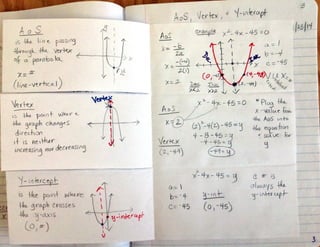 AoS, Vertex, + Y-intercept
3
AoS
is the line passing
through the vertex
of a parabola.
x=#
(line-vertical)
Vertex
is the point where
the graph changes
direction
it is neither
increasing nor decreasing
Vertex
Y-intercept
is the point where
the graph crosses
the y-axis
(0, #)
y-intercept
AoS
example
x²-4x-45=0
x=-b
2a
x=-(-4)
2(1)
x=2
a=1
b=-4
c=-45
AoS
x=2
x²-4x-45=0
(2)²-4(2)-45=y
4-8-45=y
-4-45=y
-49=y
Vertex
(2,-49)
* Plug the
x-value from
the AoS into
the equation
+ solve for
y
x²-4x-45=y
a=1
b=-4
c=-45
y-int
(0,-45)
C is
always the
y-intercept
3